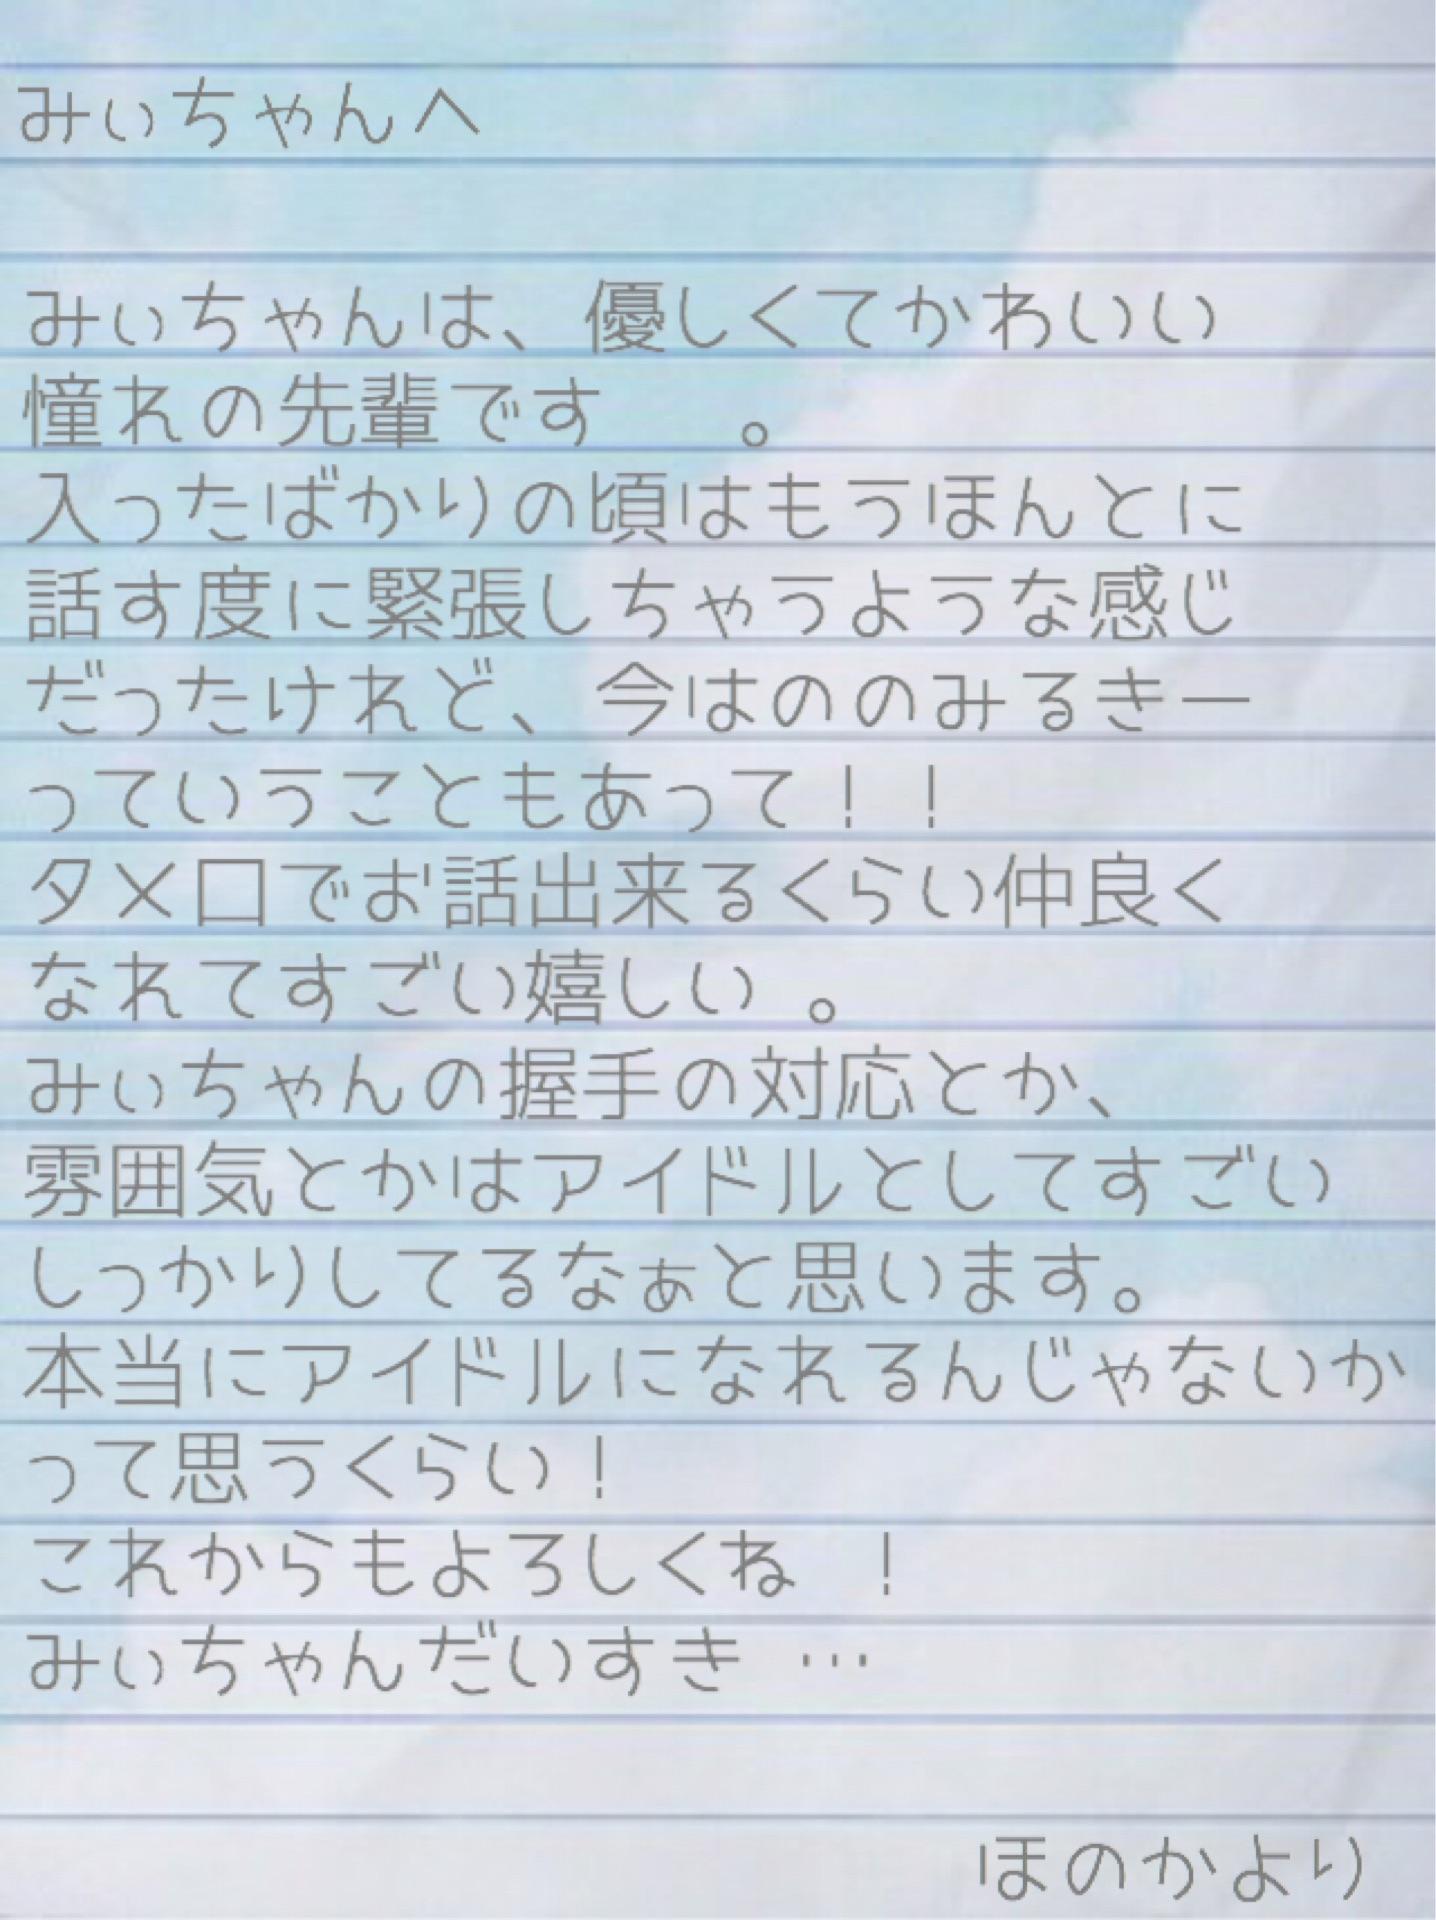 みぃちゃんへ
みぃちゃんは、優しくてかわいい
憧れの先輩です　。
入ったばかりの頃はもうほんとに
話す度に緊張しちゃうような感じ
だったけれど、今はののみるきー
っていうこともあって！！
タメ口でお話出来るくらい仲良く
なれてすごい嬉しい 。
みぃちゃんの握手の対応とか、
雰囲気とかはアイドルとしてすごい
しっかりしてるなぁと思います。
本当にアイドルになれるんじゃないか
って思うくらい！
これからもよろしくね　！
みぃちゃんだいすき …
ほのかより